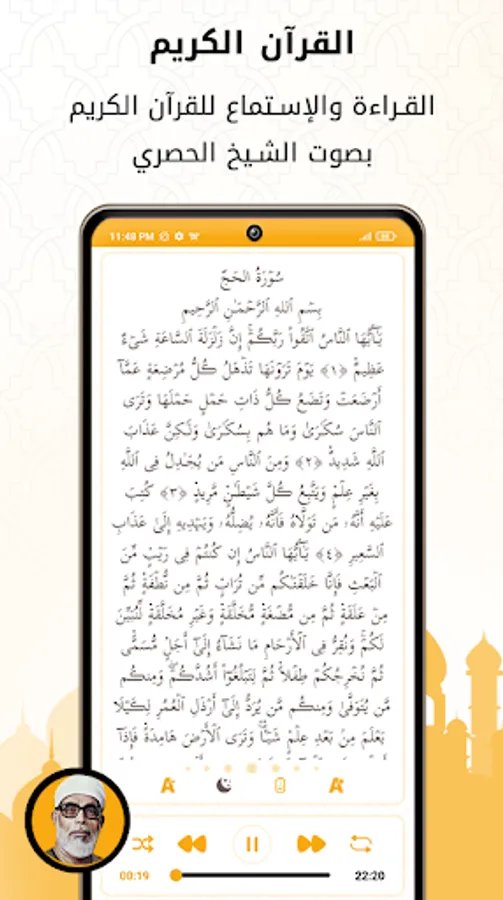 القرآن الكريم
القراءة والإستماع للقرآن الكريم
بصوت الشيخ الحصري
11:48 PM
سُورَةُ الحَجِّ
بِسْمِ ٱللَّهِ ٱلرَّحْمَـٰنِ ٱلرَّحِيمِ
يَـٰٓأَيُّهَا ٱلنَّاسُ ٱتَّقُوا۟ رَبَّكُمْ ۚ إِنَّ زَلْزَلَةَ ٱلسَّاعَةِ شَىْءٌ
عَظِيمٌ ﴿١﴾ يَوْمَ تَرَوْنَهَا تَذْهَلُ كُلُّ مُرْضِعَةٍ عَمَّآ
أَرْضَعَتْ وَتَضَعُ كُلُّ ذَاتِ حَمْلٍ حَمْلَهَا وَتَرَى
ٱلنَّاسَ سُكَـٰرَىٰ وَمَا هُم بِسُكَـٰرَىٰ وَلَـٰكِنَّ عَذَابَ
ٱللَّهِ شَدِيدٌ ﴿٢﴾ وَمِنَ ٱلنَّاسِ مَن يُجَـٰدِلُ فِى ٱللَّهِ
بِغَيْرِ عِلْمٍ وَيَتَّبِعُ كُلَّ شَيْطَـٰنٍ مَّرِيدٍ ﴿٣﴾ كُتِبَ
عَلَيْهِ أَنَّهُۥ مَن تَوَلَّاهُ فَأَنَّهُۥ يُضِلُّهُۥ وَيَهْدِيهِ إِلَىٰ عَذَابِ
ٱلسَّعِيرِ ﴿٤﴾ يَـٰٓأَيُّهَا ٱلنَّاسُ إِن كُنتُمْ فِى رَيْبٍ مِّنَ
ٱلْبَعْثِ فَإِنَّا خَلَقْنَـٰكُم مِّن تُرَابٍ ثُمَّ مِن نُّطْفَةٍ ثُمَّ
مِنْ عَلَقَةٍ ثُمَّ مِن مُّضْغَةٍ مُّخَلَّقَةٍ وَغَيْرِ مُخَلَّقَةٍ لِّنُبَيِّنَ
لَكُمْ ۚ وَنُقِرُّ فِى ٱلْأَرْحَامِ مَا نَشَآءُ إِلَىٰٓ أَجَلٍ مُّسَمًّى
ثُمَّ نُخْرِجُكُمْ طِفْلًا ثُمَّ لِتَبْلُغُوٓا۟ أَشُدَّكُمْ ۖ وَمِنكُم
مَّن يُتَوَفَّىٰ وَمِنكُم مَّن يُرَدُّ إِلَىٰٓ أَرْذَلِ ٱلْعُمُرِ لِكَيْلَا
يَعْلَمَ مِنۢ بَعْدِ عِلْمٍ شَيْـًٔا ۚ وَتَرَى ٱلْأَرْضَ هَامِدَةً فَإِذَآ
00:19
22:20